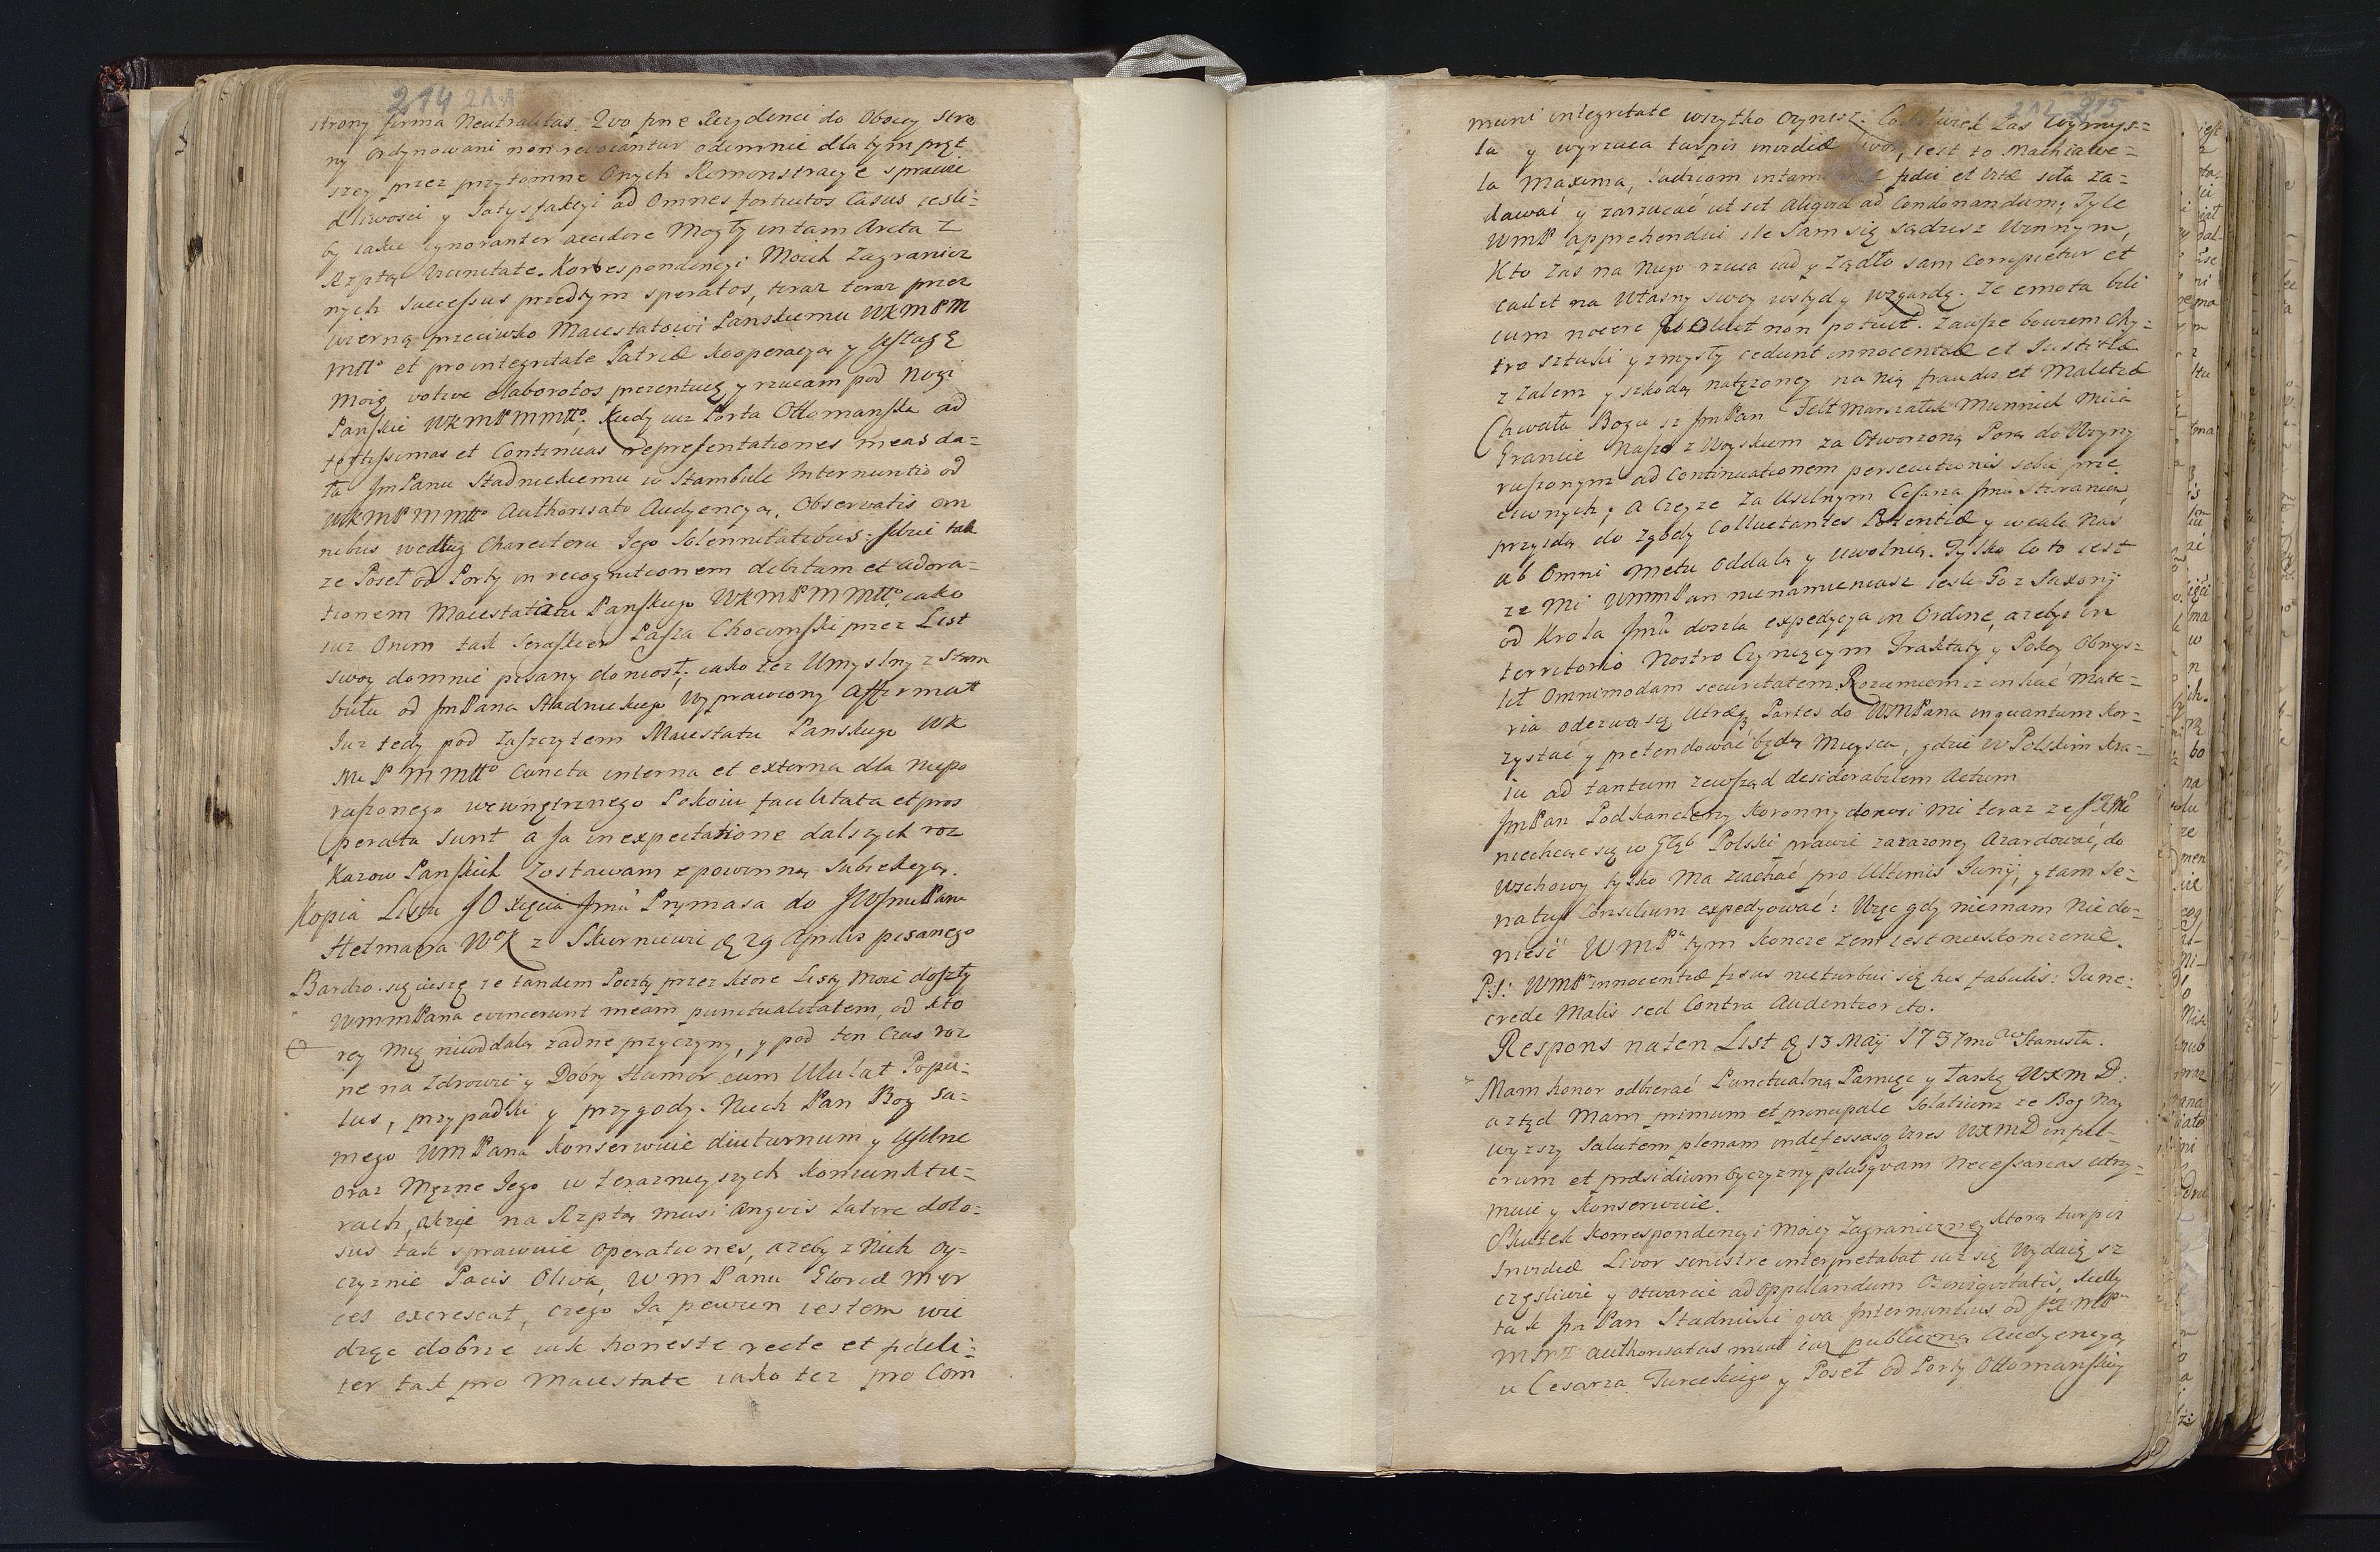 214 211
strony firma Neutralitas. Quo fine Rezydenci do Obocy stro
ny Ordynowani non revocantur odemnie dla tym pręt
szey przez przytomne Onych Remonstracye sprawie
dliwosci y Satysfakcyi ad Omnes fortuitos Casus iesli=
by iakie ignoranter accidere Mogły in tam Arcta Z
Rzptą Vicinitate. Korrespondencyi Moich Zagranicz
nych Successus przedtym speratos, teraz teraz przez
wierną przeciwko Maiestatowi Panskiemu WKMPM
Mtto et pro integritate Patriæ kooperacyą y Usługę
Moię votive elaboratos prezentuię y rzucam pod Nogi
Panskie WKMPMMtto; Kiedy iuz Porta Ottomanska ad
fortissimas et Continuas repræsentationes meas da=
ła JmPanu Stadnickiemu w Stambule Internuntio od
WKMPMMtto Authorisato Audyencyą, Observatis om
nibus według Charecteru Jego Solennitatibus: Idzie tak
ze Poseł od Porty in recognitionem debitam et adora=
tionem Maiestatu Panskiego WKMPMMtto, iako
iuz Onim tak Seraskier Pasza Chocimski przez List
swoy domnie pisany doniosł, iako tez Umyslny z Stam
bułu od JmPana Stadnickiego Wyprawiony affirmat
Iuz tedy pod Zaszczytem Maiestatu Panskiego WK
M P M Mtto Cuncta interna et externa dla niepo
ruszonego wewnętrznego Pokoiu facilitata et pros
perata sunt a Ja in expectatione dalszych roz
kazow Panskich Zostawam z powinną Subiekcyą.
Kopia Listu JO Xięcia Jmci Prymasa do JWJmcPana
Hetmana WoK z Skierniewic D 29 Aprilis pisanego
Bardzo się cieszę ze tandem Poczty przez ktore Listy Moie doszły
WMMPana evincerunt meam punctualitatem, od kto
rey Mię nieoddalą zadne przyczyny, y pod ten Czas roz
ne na Zdrowie y Dobry Humor cum Ululat Popu=
lus, przypadki y przygody. Niech Pan Bog sa=
mego WMPana konserwuie diuturnum y Usilne
oraz Męzne Jego w terazneyszych koniunktu=
rach, akcye na Rzptą musi Angvis latere dolo=
sus tak sprawuie Operationes, azeby z Nich Oy=
czyznie Pacis Oliva, WMPanu Gloriæ Myr
tes excrescat, czego Ja pewien iestem wie
dząc dobrze iak honeste recte et fideli=
ter tak pro Maiestate iako tez pro Com
212 215
muni integritate wszytko czynisz. Cokolwiek Zas Wymys=
la y wyrzuca turpis invidiæ livor, iest to Machiawe=
la Maxima, ludziom intaminatæ fidei et Vitæ siła za=
dawać y zarzucać ut sit aliquid ad Condonandum, Tyle
WMP apprehendui ile Sam się sądzisz Winnym,
Kto Zas na Niego rzuca iad y Ządło sam Corripietur et
cadet na Własny swoy wstyd y wzgardę. Ze emota bili
cum nocere voluit non potuit. Zawsze bowiem Chy=
tro sztuki y zmysły cedunt innocentiæ et Iustitiæ
z Zalem y szkodą natęzoney na Nią fraudis et Malitiæ
Chwała Bogu iz JmPan Feltmarszałek Munnich Miia
Granice Nasze z Woyskiem za Otworzoną Porą do Woyny
ruszonym ad Continuationem persecutionis sobie prze
ciwnych; A Czyze Za Usilnym Cesarza Jmci Staraniem,
przyidą do Zgody Colluctantes Potentiæ y wcale Nas
ab Omni Metu Oddalą y Uwolnią. Tylko Co to iest
ze Mi WMMPan nienamieniasz iesli Go z Saxonij
od Krola Jmci doszła expedycya in Ordine, azebys in
territorio Nostro Czyniącym Traktaty y Pokoy Obmys=
lił Omnimodam securitatem. Rozumiem iz in hac Mate=
ria odezwą się Utræq Partes do WMPana in quantum kor=
zystać y pretendować będą Mieysca, gdzie w Polskim Kra=
iu ad tantum zewsząd desiderabilem Actum
JmPan Podkanclerzy Koronny donosi Mi teraz ze JKMc
niechcąc się w Głąb Polski prawie zarazoney Azardować, do
Wschowy tylko Ma ziachać pro Ultimis Junij, y tam Se=
natus Consilium expedyować: Więc gdy niemam Nic do=
niesć WMPa tym konczę zem iest nieskonczenie.
P:S: WMPn innocentiæ fisus nieturbui się his fabulis: Tu ne=
crede Malis sed Contra Audentior ito.
Respons na ten List D 13 Maij 1737mo w Stanisła.
Mam honor odbierać Punctualną Pamięć y łaskę WXMD:
a ztąd Mam primum et principale Solatium ze Bog Nay
wyzszy Salutem plenam indefessasq Vires WXMD in ful=
crum et præsidium Oyczyzny plusqvam Necessarias utrzy=
muie y konserwuie.
Skutek Korrespondencyi Moiey Zagraniczney ktorą turpis
Invidiæ Livor sinistre interpretabat iuz się Wydaią sz
częsliwie y otwarcie ad oppilandum Os iniquitatis, kiedy
tak Jm Pan Stadnicki qva Internuntius od JKMPn
M Mtt authorisatus miał iuz publiczną Audyencyą
u Cesarza Tureckiego y Poseł Od Porty Ottomanskiey